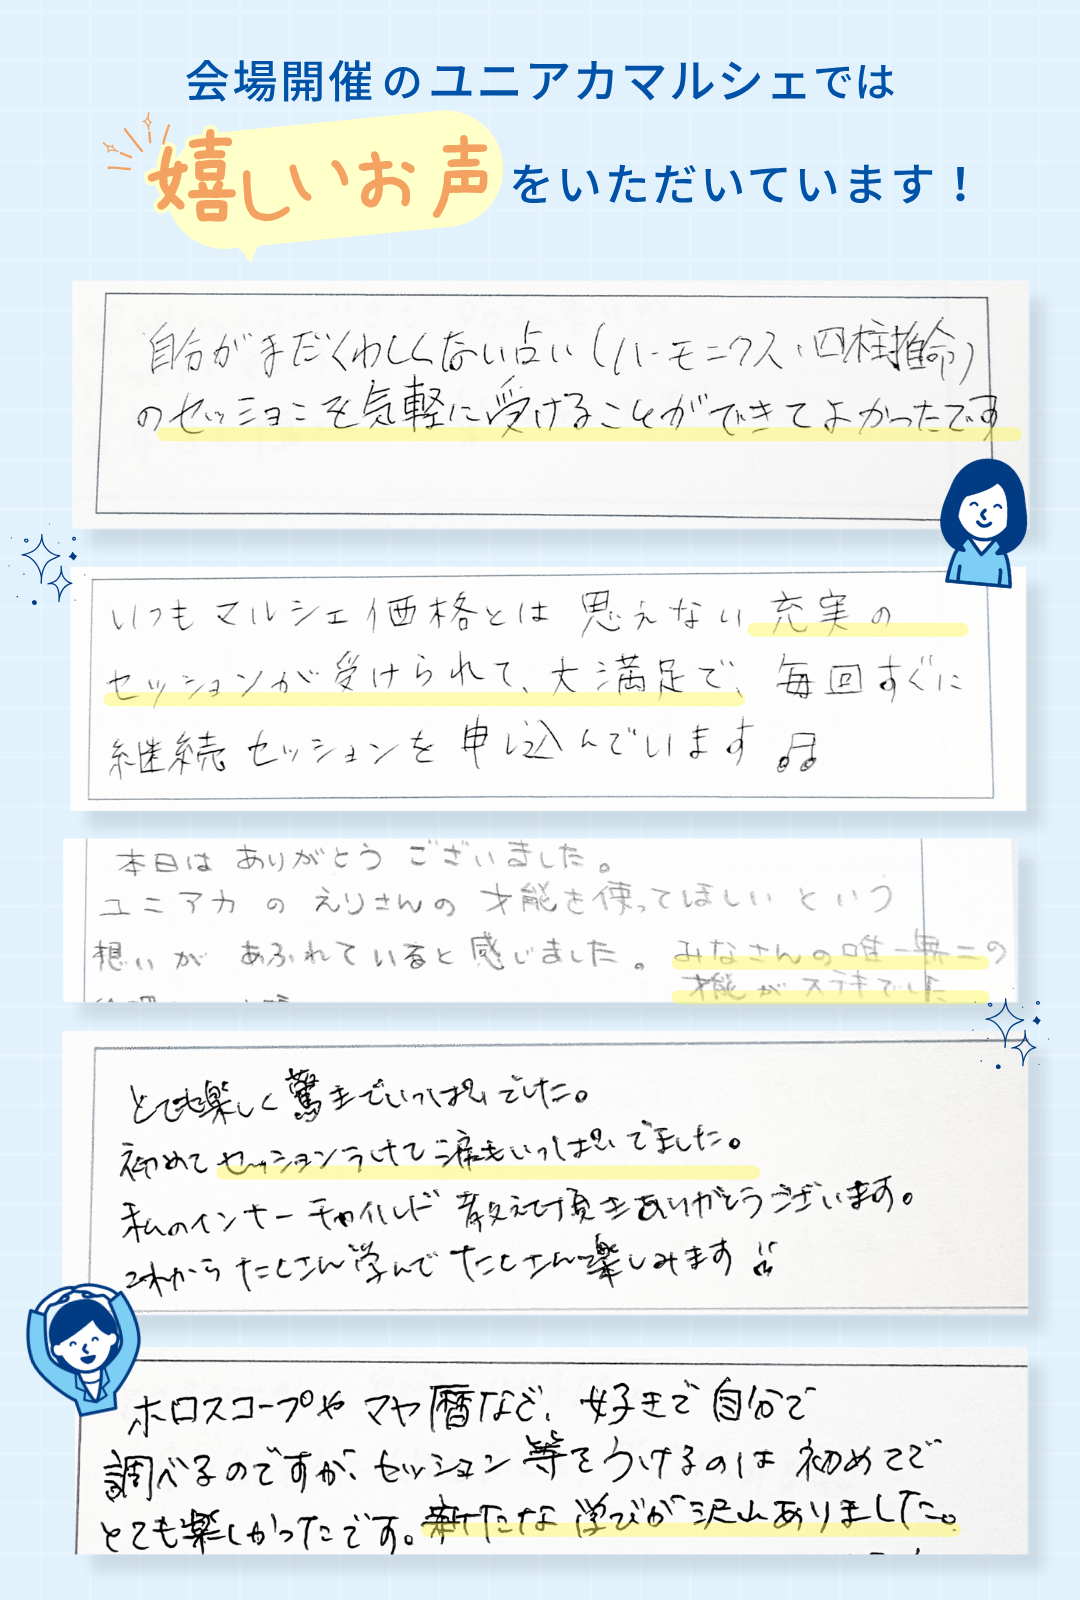 会場開催のユニアカマルシェでは
嬉しいお声をいただいています！
自分がまだくわしくない占い（ハーモニクス・四柱推命）
のセッションを気軽に受けることができてよかったです
いつもマルシェ価格とは思えない充実の
セッションが受けられて、大満足で、毎回すぐに
継続セッションを申し込んでいます♫
本日はありがとうございました。
ユニアカのえりさんの才能を使ってほしいという
想いがあふれていると感じました。みなさんの唯一無二の
才能がステキでした
とても楽しく驚きでいっぱいでした。
初めてセッションうけて涙もいっぱいでました。
私のインナーチャイルド教えて頂きありがとうございます。
これからたくさん学んでたくさん楽しみます
ホロスコープやマヤ暦など、好きで自分で
調べるのですが、セッション等をうけるのは初めてで
とても楽しかったです。新たな学びが沢山ありました。